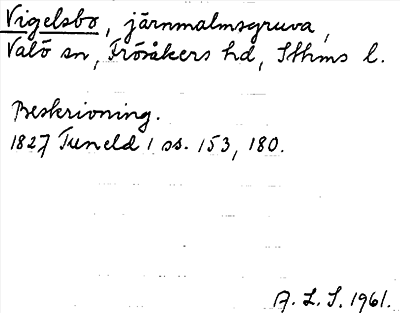 Vigelsbo, järnmalmsgruva,
Valö sn, Frösåkers hd, Sthms l.
Beskrivning.
1827 Tuneld 1 ss. 153, 180.
A. L. S. 1961.